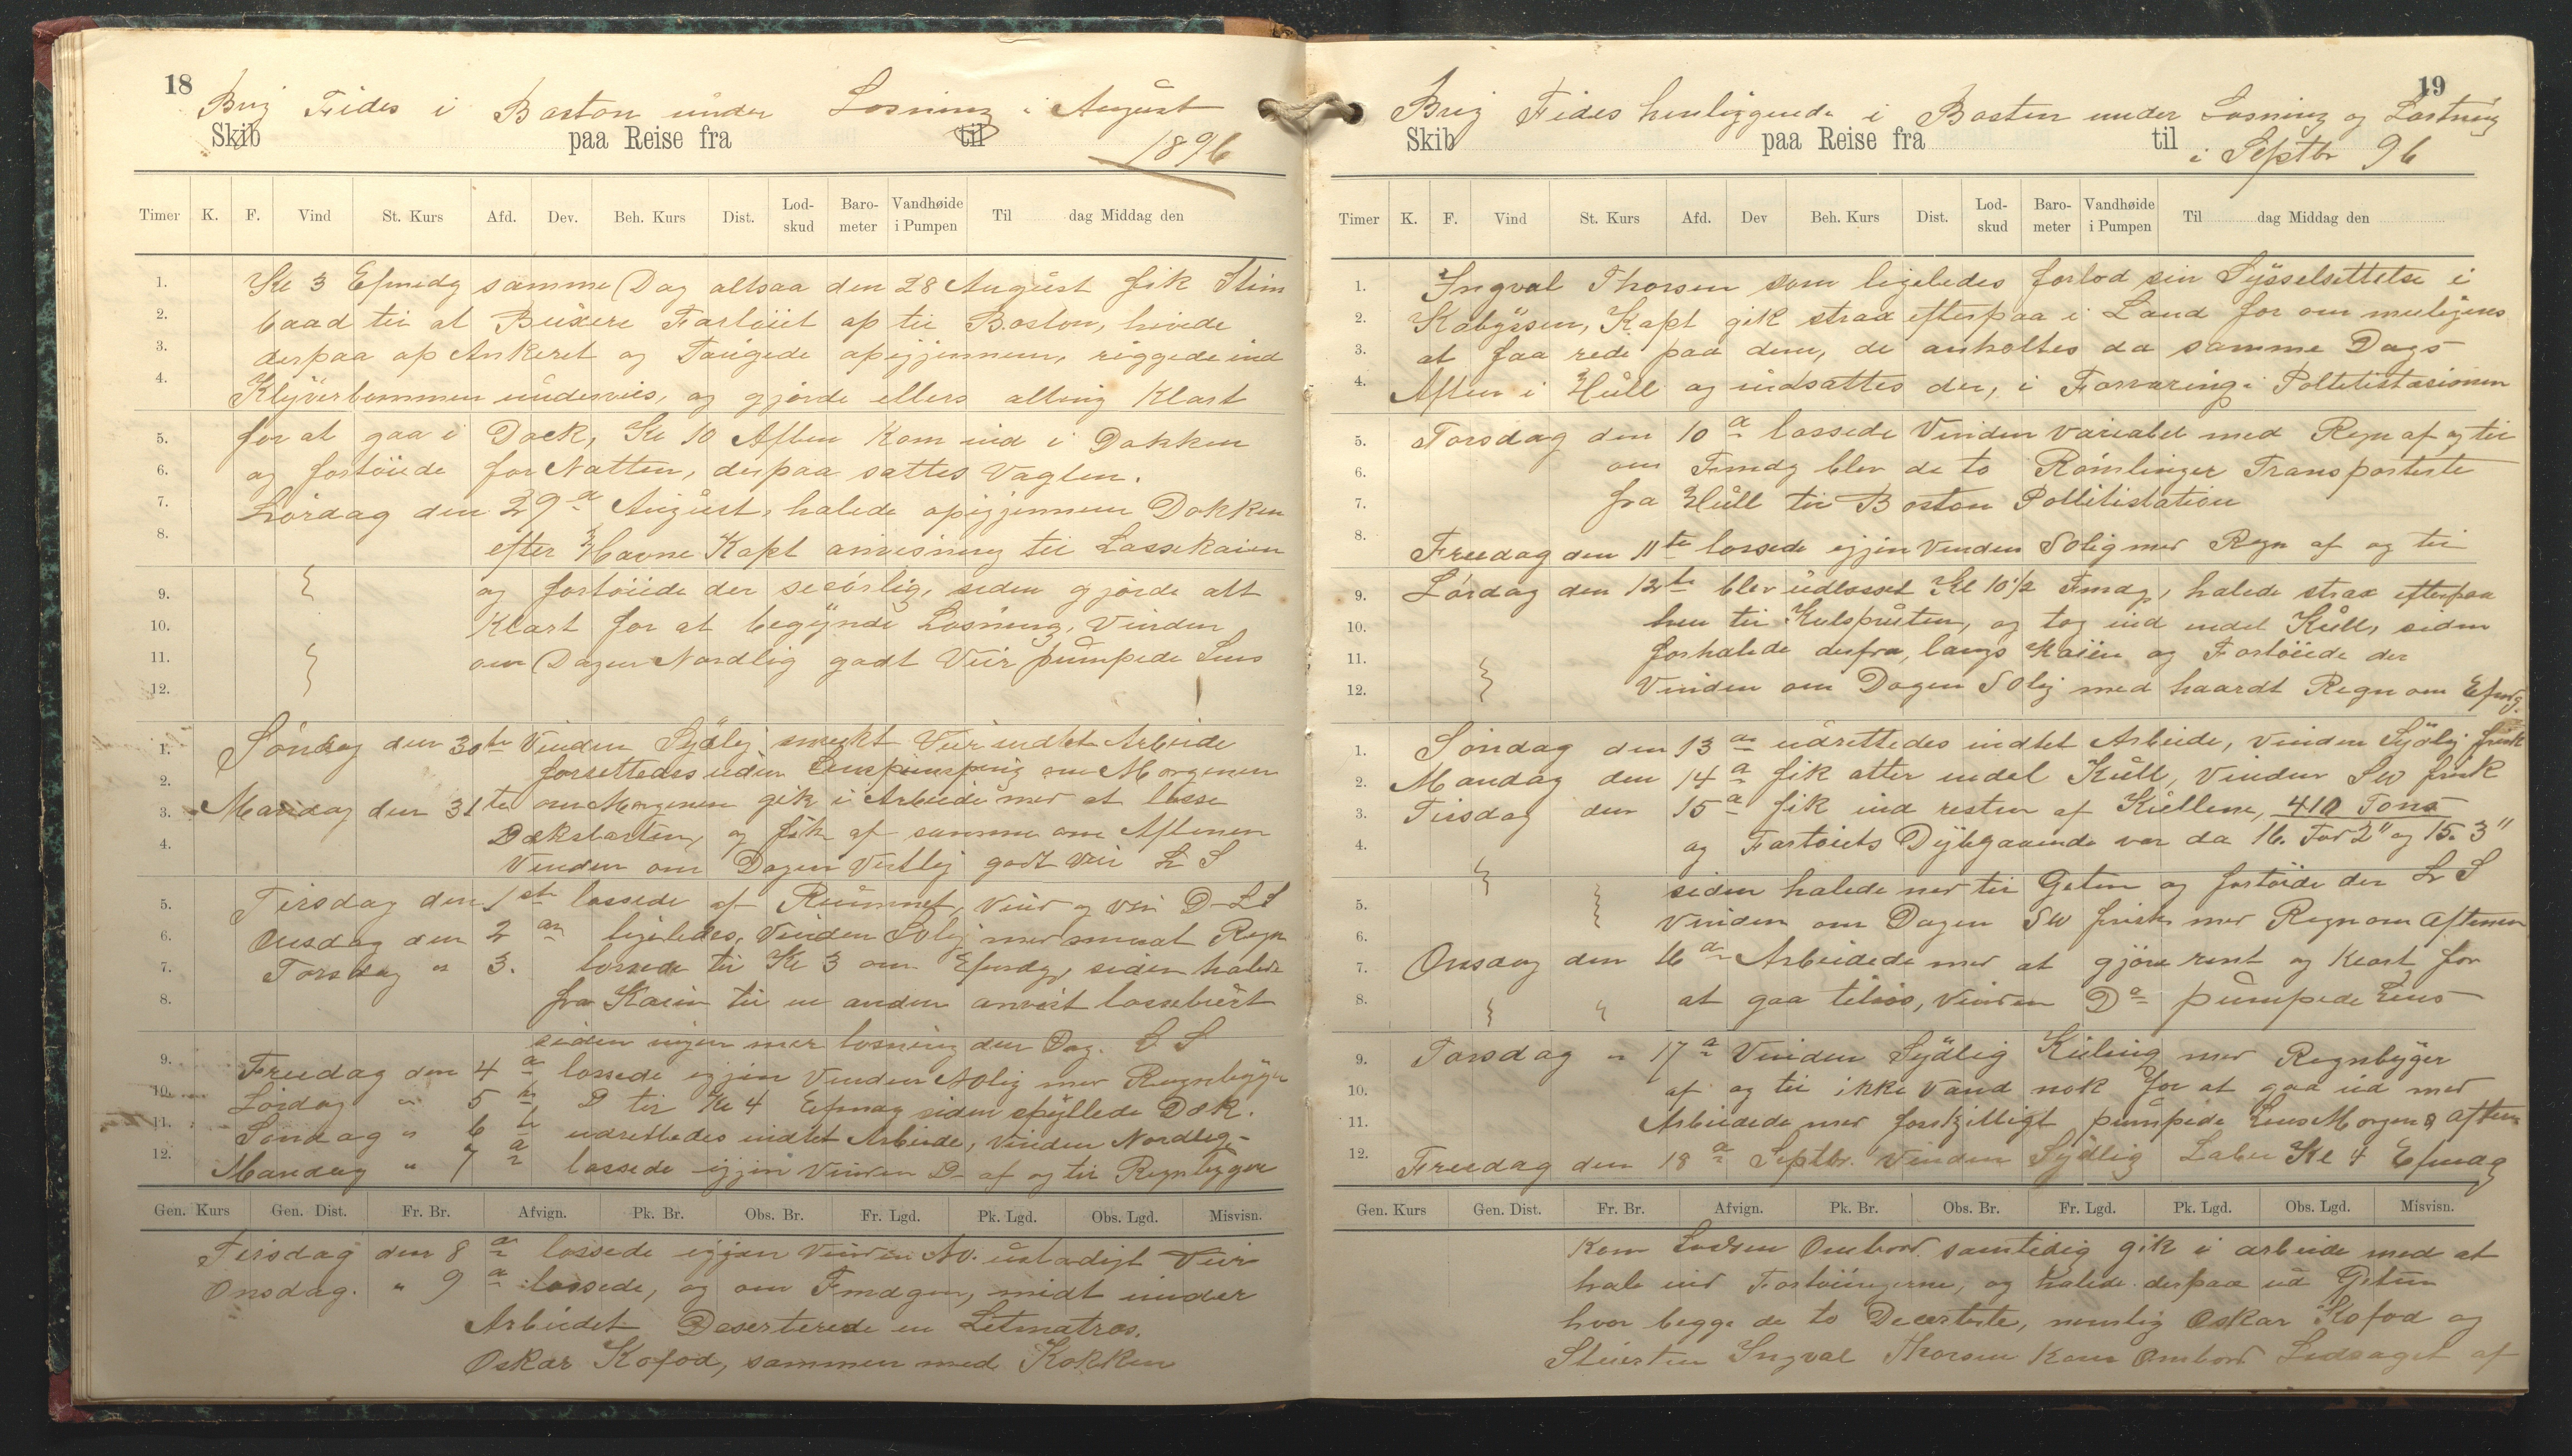 18
Brig Fides i Boston under Losning i August
Skib paa Reise fra til
1896
Timer K. F. Vind St. Kurs Afd. Dev. Beh. Kurs Dist. Lod-skud Baro-meter Vandhøide i Pumpen Til dag Middag den
1. Kl 3 Efmdg samme Dag altsaa den 28 August fik Stim
2. baad til at Buxere Fartöiet op til Boston, hivede
3. derpaa op Ankeret og Taugede opigjennem, riggede ind
4. Klyverbommen underveis, og gjorde ellers alting Klart
5. for at gaa i Dock, Kl 10 Aften kom ind i Dokken
6. og fortöiede for Natten, derpaa sattes Vagten.
7. Lördag den 29de August, halede opigjennem Dokken
8. efter Havne Kapt anvisning til Lossekaien
9. og fortöiede der secörlig, siden gjorde alt
10. Klart for at begynde Losning, Vinden
11. om Dagen Nordlig godt Veir pumpede Lens
12.
1. Söndag den 30te Vinden Sydlig smukt Veir indtet Arbeide
2. forrettedes uden Lenspumping om Morgenen
3. Mandag den 31te om Morgenen gik i Arbeide med at losse
4. Dækslasten, og fik af samme om Aftenen
Vinden om Dagen Vestlig godt Veir L S
5. Tirsdag den 1ste lossede af Rummet, Vind og Veir D- L S
6. Onsdag den 2den ligeledes, Vinden SOlig med smaat Regn
7. Torsdag " 3. lossede til Kl 3 om Efmdg, siden halede
8. fra Kaien til en anden anvist lossebrest
siden ingen mer losning den Dag. L S
9. Freedag den 4de lossede igjen Vinden NOlig med Regnbyger
10. Lördag " 5te D til Kl 4 Efmdg siden spyllede Dæk.
11. Söndag " 6te udrettedes indtet Arbeide, Vinden Nordlig-
12. Mandag " 7de lossede igjen Vinden D- af og til Regnbyger
Gen. Kurs Gen. Dist. Fr. Br. Afvign. Pk. Br. Obs. Br. Fr. Lgd. Pk. Lgd. Obs. Lgd. Misvisn.
Tirsdag den 8de lossede igjen Vinden NO. ustadigt Veir
Onsdag. " 9de lossede, og om Fmdgen, midt under
Arbeidet Deserterede en Letmatros.
Oskar Kofod, sammen med Kokken
19
Brig Fides henliggende i Boston under Losning og Lastning
Skib paa Reise fra til
i Septbr 96
Timer K. F. Vind St. Kurs Afd. Dev Beh. Kurs Dist. Lod-skud Baro-meter Vandhøide i Pumpen Til dag Middag den
1. Ingval Thorsen som ligeledes forlod sin Sysselsettelse i
2. Kabyssen, Kapt gik strax efterpaa i Land for om muligens
3. at faa rede paa dem, de anholtes da samme Dags
4. Aften i Hull og indsattes der, i Forvaring i Politistasionen
5. Torsdag den 10de lossede Vinden variabel med Regn af og til
6. om Fmdg blev de to Römlinger Transporterte
7. fra Hull til Boston Pollitistation
8. Freedag den 11te lossede igjen Vinden SOlig med Regn af og til
9. Lördag den 12te blev udlosset Kl 10½ Fmdg, halede strax efterpaa
10. hen til Kulspruten, og tog ind endel Kull, siden
11. forhalede derfra, langs Kaien og Fortöiede der
12. Vinden om Dagen SOlig med haardt Regn om Efmdg.
1. Söndag den 13de udrettedes indtet Arbeide, Vinden Sydlig frisk
2. Mandag den 14de fik atter endel Kull, Vinden SW frisk
3. Tirsdag den 15de fik ind resten af Kullene, 410 Tons
4. og Fartöiets Dybgaaende var da 16. Fod 2" og 15. 3"
siden halede ned til Geten og fortöide der L S
5. Vinden om Dagen SW frisk med Regn om Aftenen
6.
7. Onsdag den 16de Arbeidede med at gjöre rent og klart for
8. at gaa tilsös, Vinden Do pumpede Lens
9. Torsdag " 17de Vinden Sydlig Kuling med Regnbyger
10. af og til ikke Vand nok for at gaa ud med
11. Arbeidede med forskjelligt pumpede Lens Morgen & Aften
12. Freedag den 18de Septbr. Vinden Sydlig Laber Kl 4 Efmdg
Gen. Kurs Gen. Dist. Fr. Br. Afvign. Pk. Br. Obs. Br. Fr. Lgd. Pk. Lgd. Obs. Lgd. Misvisn.
Kom Lodsen Ombord samtidig gik i arbeide med at
hale ind Fortöiningerne, og halede derpaa ud Geten
hvor begge de to Deserterte, nemlig Oskar Kofod og
Stuerten Ingval Thorsen kom Ombord Ledsaget af